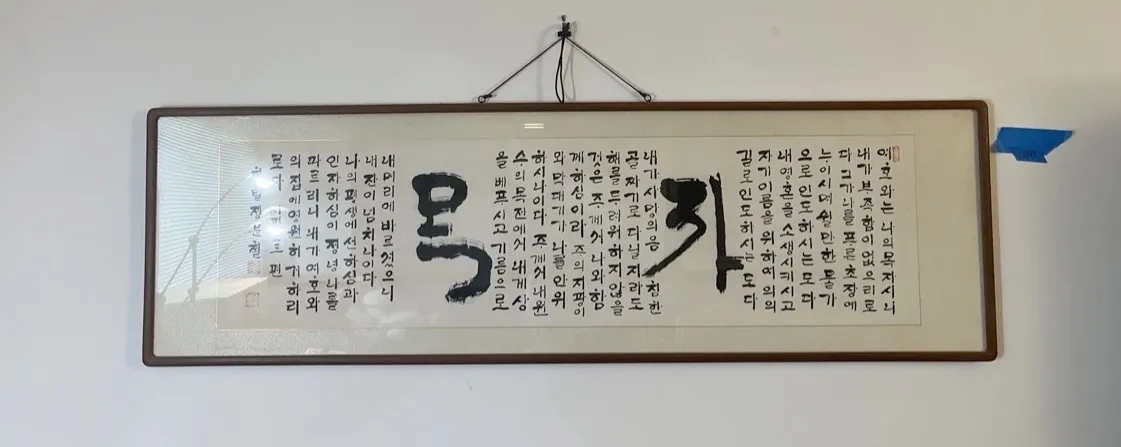 여호와는 나의 목자시니
내가 부족함이 없으리로
다 그가 나를 푸른 초장에
누이시며 쉴만한 물가
으로 인도하시는도다
내 영혼을 소생시키시고
자기 이름을 위하여 의의
길로 인도하시는도다
목자
내가 사망의 음침한
골짜기로 다닐지라도
해를 두려워하지 않을
것은 주께서 나와 함
께 하심이라 주의 지팡이
와 막대기가 나를 안위
하시나이다 주께서 내 원
수의 목전에서 내게 상
을 베푸시고 기름으로
내 머리에 바르셨으니
내 잔이 넘치나이다
나의 평생에 선하심과
인자하심이 정녕 나를
따르리니 내가 여호와
의 집에 영원히 거하리
로다 시편